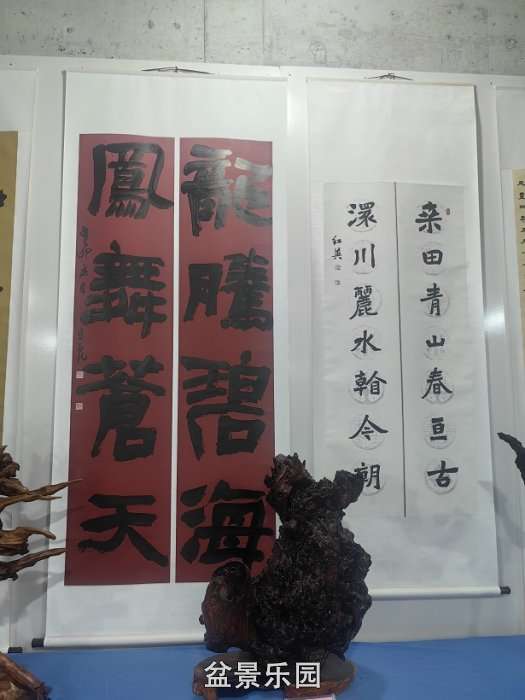 龍騰碧海
鳳舞蒼天
辛卯
栾田青山春亘古
澴川麗水翰今朝
红英
盆景乐园